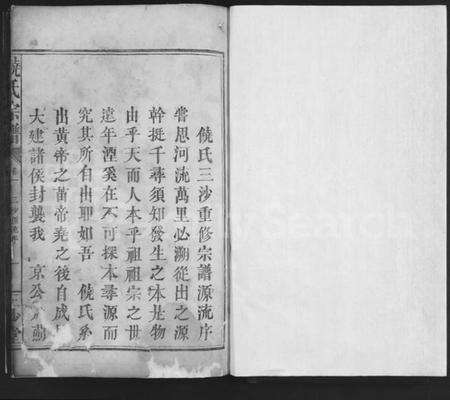 饒氏三沙重修宗譜源流序
嘗思河流萬里必溯從出之源
幹挺千尋須知發生之本是物
由乎天而人本乎祖祖宗之世
遠年湮奚在不可探本尋源而
究其所自出耶如吾 饒氏系
出黃帝之苗帝堯之後自成
大建諸侯封襲我 京公
饒氏宗譜